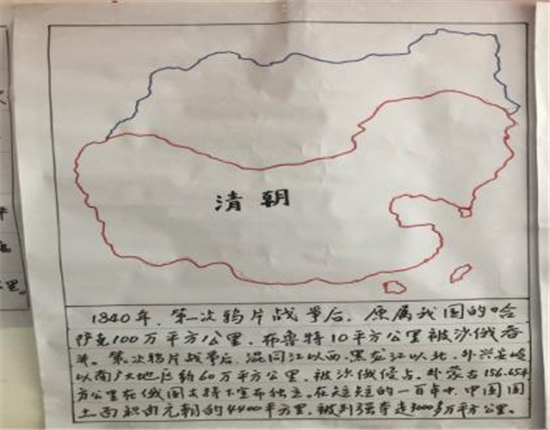 清朝
1840年,第一次鸦片战争后,原属我国的哈
萨克100万平方公里,布鲁特10平方公里被沙俄吞
并。第次鸦片战争后,混同江以西,黑龙江以北,外兴安岭
以南广大地区约60万平方公里,被沙俄侵占,外蒙古156.654
方公里在俄国支持下宣布独立。在短短的一百年中,中国国
土面积由元朝的4400平方里,被列强夺走3000多万平方公里。
里。